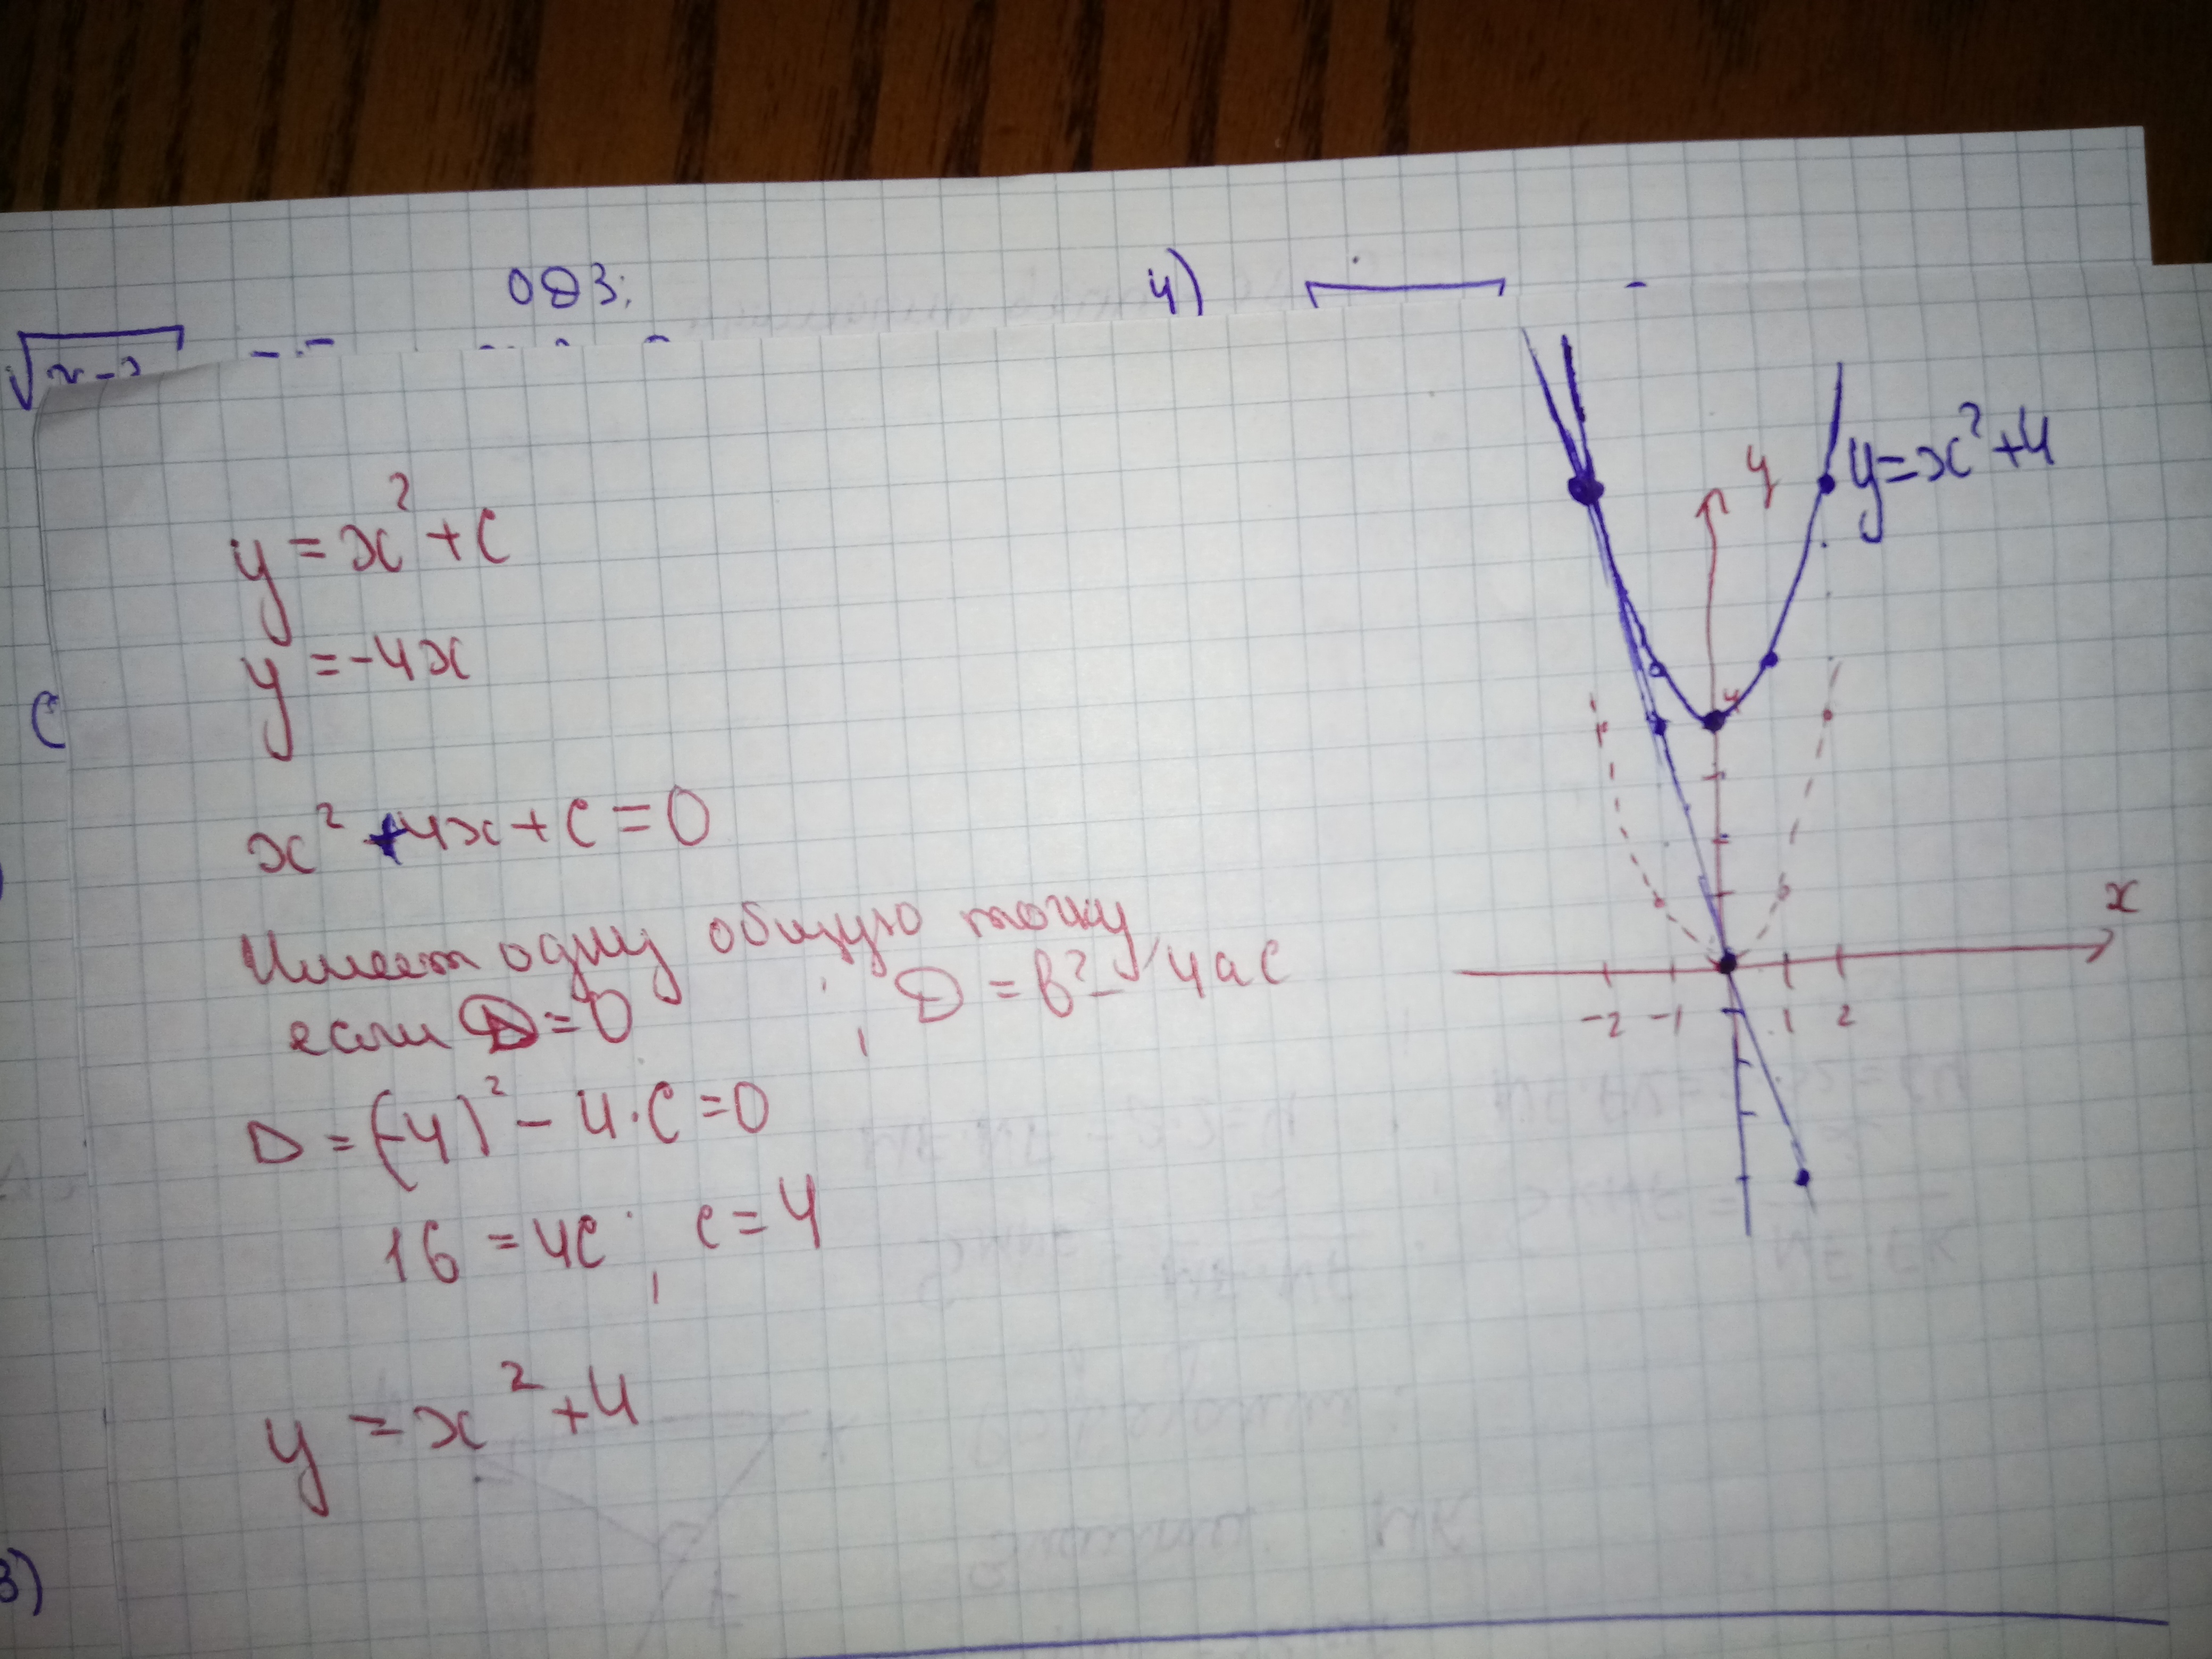 ОДЗ:
4)
√x-2
y = x² + c
y = -4x
c
x² + 4x + c = 0
Имеет одну общую точку
если D = 0 ; D = b² - 4ac
D = (-4)² - 4·c = 0
16 = 4c ; c = 4
y = x² + 4
3)
y = x² + 4
y
4
x
-2 -1 1 2